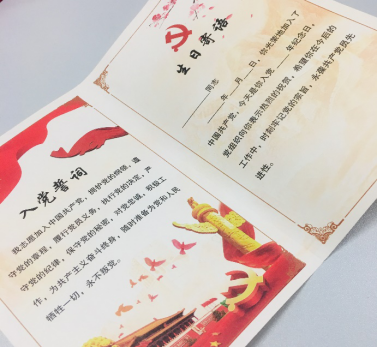 生日寄语
______同志
____年__月__日，你光荣地加入了
中国共产党，今天是你入党____年纪念日，
党组织向你表示热烈的祝贺，希望你在今后的
工作中，时刻牢记党的宗旨，永葆共产党员先
进性。
入党誓词
我志愿加入中国共产党，拥护党的纲领，遵
守党的章程，履行党员义务，执行党的决定，严
守党的纪律，保守党的秘密，对党忠诚，积极工
作，为共产主义奋斗终身，随时准备为党和人民
牺牲一切，永不叛党。